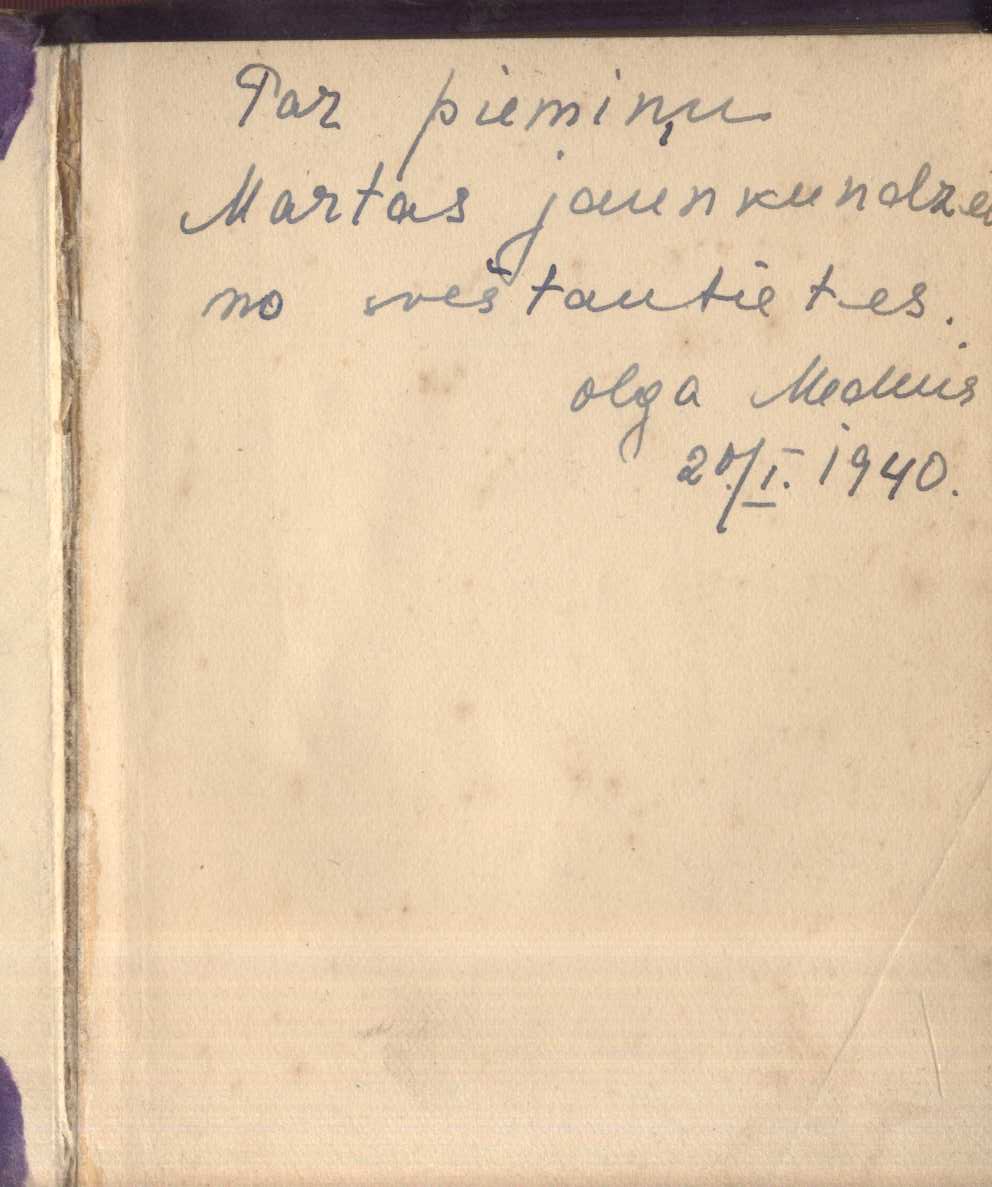 Par piemiņu
Martas jaunkundzei
no sveštautietes.
Olga Mednis
20./I. 1940.